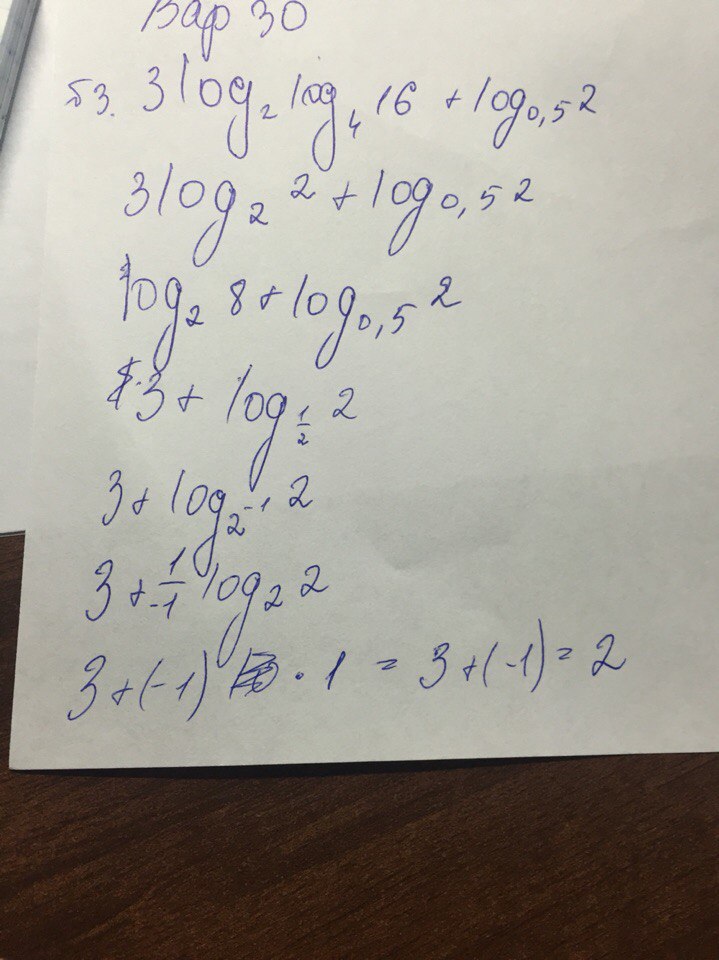 Вар 30
б3. 3 log₂ log₄ 16 + log₀,₅ 2
3 log₂ 2 + log₀,₅ 2
log₂ 8 + log₀,₅ 2
3 + log_{1/2} 2
3 + log_{2⁻¹} 2
3 + 1/-1 log₂ 2
3 + (-1) · 1 = 3 + (-1) = 2